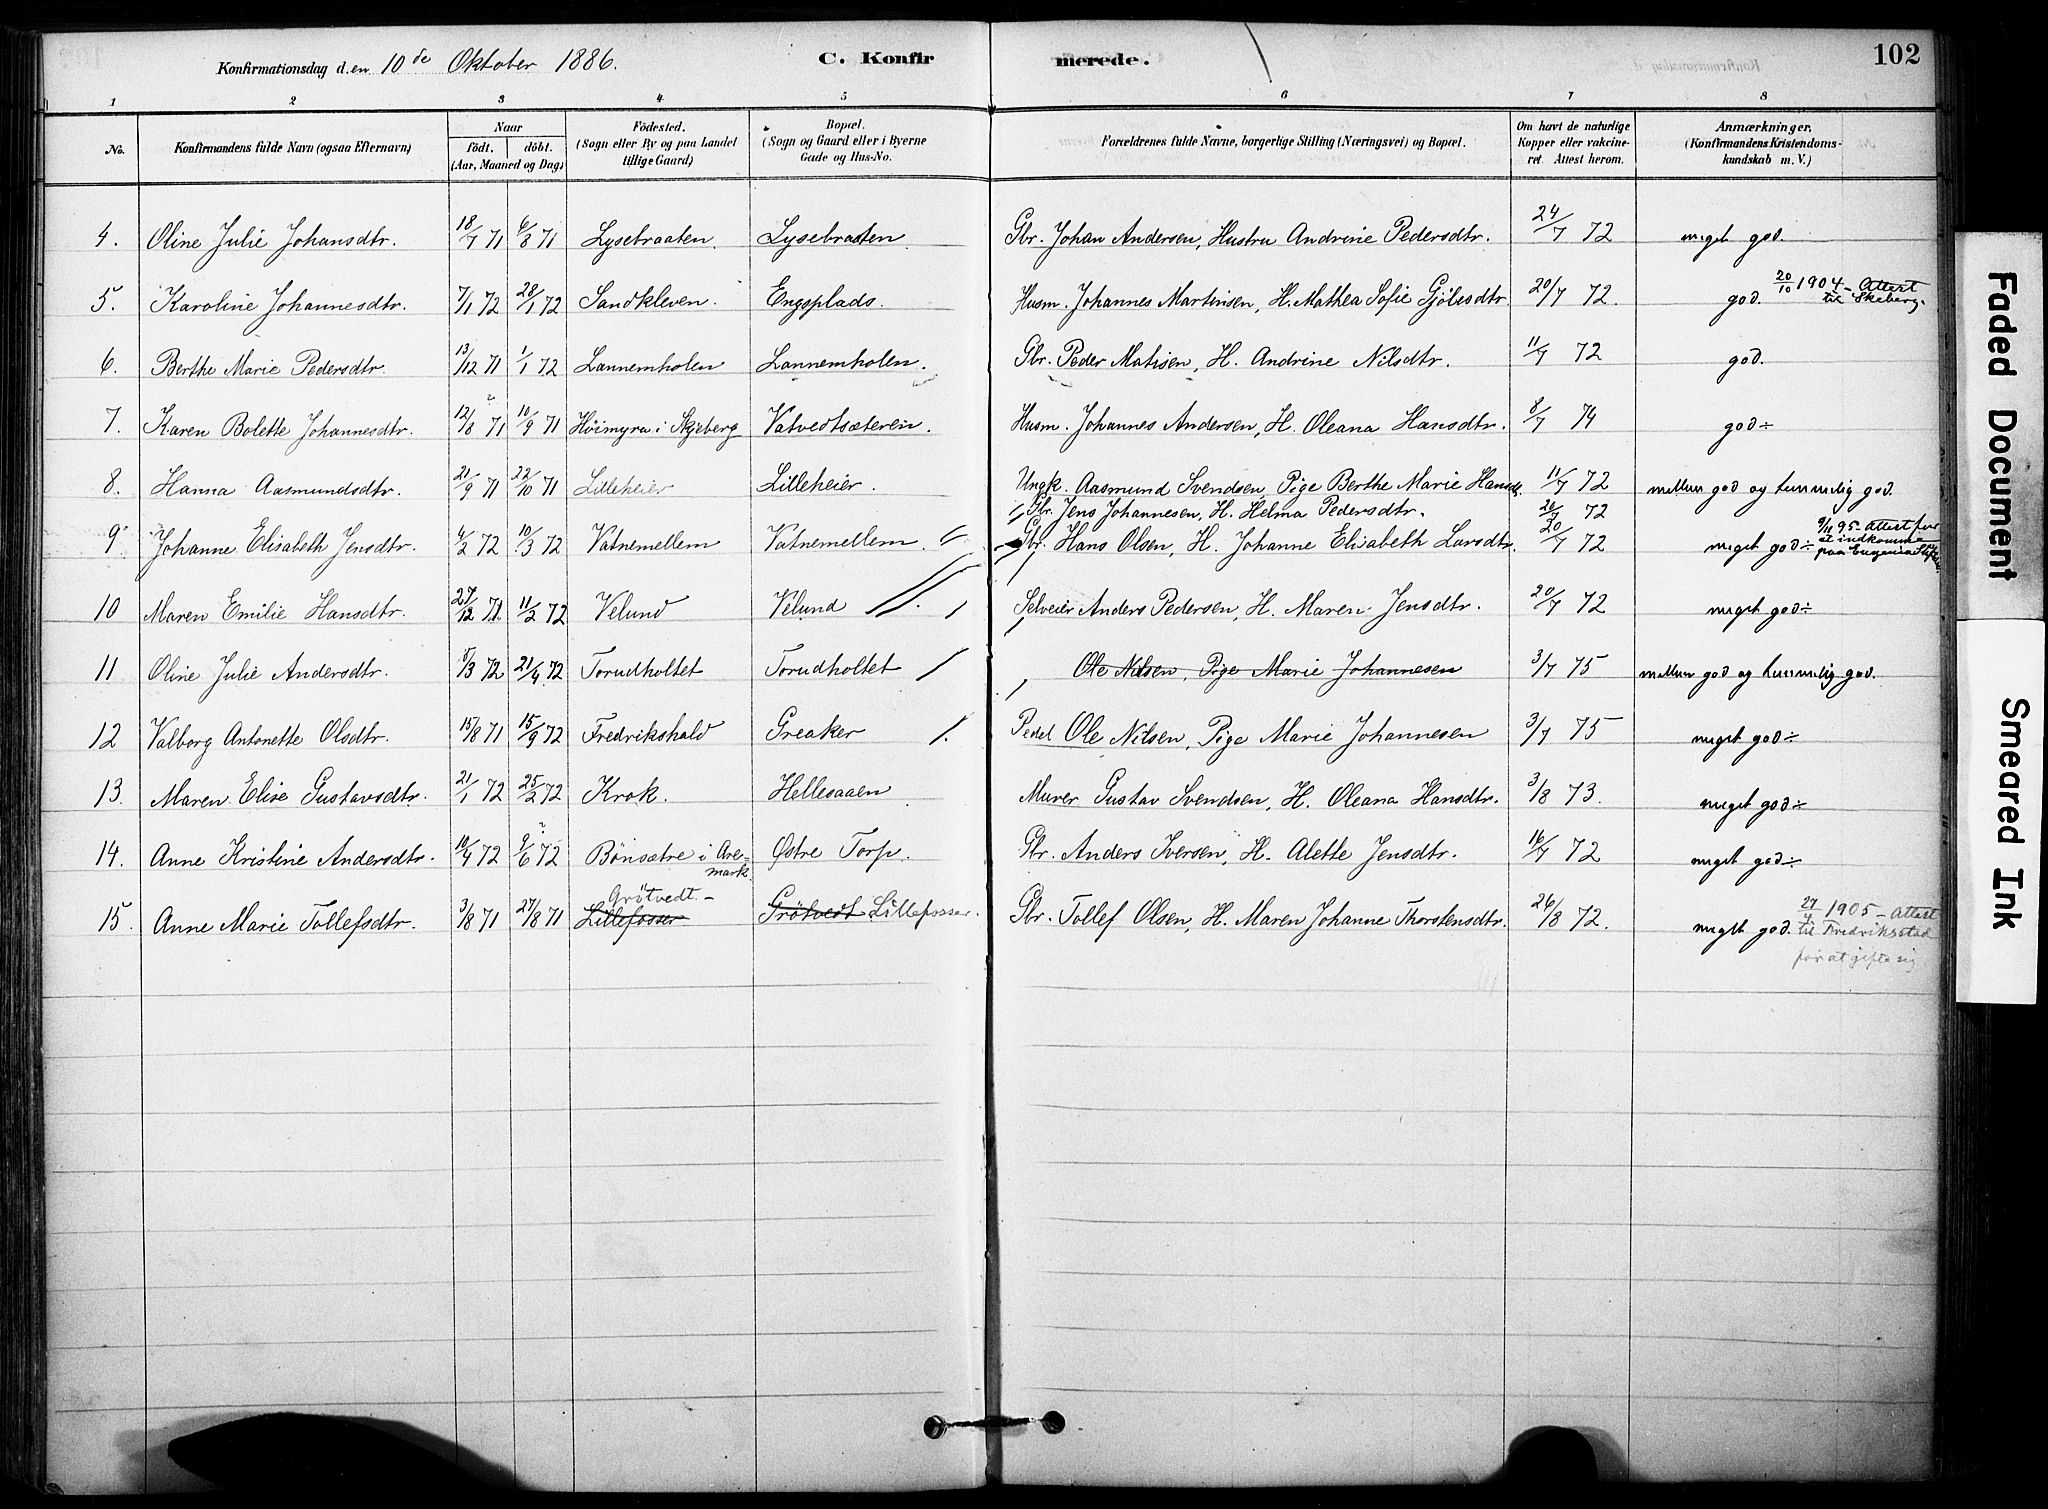 Konfirmationsdag den 10de Oktober 1886. C. Konfirmerede. 102
1 2 3 4 5 6 7 8
No. Konfirmandens fulde Navn (ogsaa Efternavn) Naar födt. döbt. (Aar, Maaned og Dag) Födested. (Sogn eller By og paa Landet tillige Gaard) Bopæl. (Sogn og Gaard eller i Byerne Gade og Hus-No. Forældrenes fulde Navne, borgerlige Stilling (Næringsvei) og Bopæl. Om havt de naturlige Kopper eller vakcineret. Attest herom. Anmærkninger. (Konfirmandens Kristendomskundskab m. V.)
4. Oline Julie Johansdtr. 18/7 71 6/8 71 Lysebraaten. Lysebraaten. Gbr. Johan Andersen, Hustru Andrine Pedersdtr. 24/7 72 meget god.
5. Karoline Johannesdtr. 7/1 72 28/1 72 Sandkleven. Engsplads. Husm. Johannes Martinsen, H. Mathea Sofie Gjölesdtr. 20/7 72. god. 20/10 1904 - Attest til Skeberg.
6. Berthe Marie Pedersdtr. 13/12 71 1/1 72 Lannemholen Lannemholen. Gbr. Peder Matisen, H. Andrine Nilsdtr. 11/7 72 god.
7. Karen Bolette Johannesdtr. 12/8 71 10/9 71 Höimyra i Skjeberg Vatvedtsæteren. Husm. Johannes Andersen, H. Oleana Hansdtr. 8/7 74 god÷
8. Hanna Aasmundsdtr. 21/9 71 22/10 71 Lilleheier Lilleheier. Ungk. Aasmund Svendsen, Pige Berthe Marie Hansdtr. 11/7 72 mellem god og temmelig god.
Gbr. Jens Johannesen, H. Helma Pedersdtr. 20/7 72
9. Johanne Elisabeth Jensdtr. 4/2 72 10/3 72 Vatnemellem Vatnemellem. Gbr. Hans Olsen, H. Johanne Elisabeth Larsdtr. 20/7 72 meget god÷ 9/11 95 - Attest for at indkomme paa Eugenia Stift.
10 Maren Emilie Hansdtr. 27/12 71 11/2 72 Velund Velund Selveier Anders Pedersen, H. Maren Jensdtr. 20/7 72 meget god÷
11 Oline Julie Andersdtr. 5/3 72 21/4 72 Torudholtet Torudholtet Ole Nilsen, Pige Marie Johannesen 3/7 75 mellem god og temmelig god.
12 Valborg Antonette Olsdtr. 15/8 71 15/9 72 Fredrikshald Greaker Pedel Ole Nilsen, Pige Marie Johannesen 3/7 75 meget god÷
13. Maren Elise Gustavsdtr. 21/1 72 25/2 72 Krok. Hellesaaen Murer Gustav Svendsen, H. Oleana Hansdtr. 3/8 73. meget god÷
14. Anne Kristine Andersdtr. 10/4 72 9/6 72 Bönsætre i Aremark. Østre Torp. Gbr. Anders Iversen, H. Alette Jensdtr. 16/7 72 meget god÷
15. Anne Marie Tollefsdtr. 3/8 71 27/8 71 Grötvedt. Lillefosser Grötvedt Lillefosser. Gbr. Tollef Olsen, H. Maren Johanne Thorstensdtr. 26/8 72. meget god. 27/4 1905 - Attest til Fredriksstad for at gifte sig
Faded Document
Smeared Ink